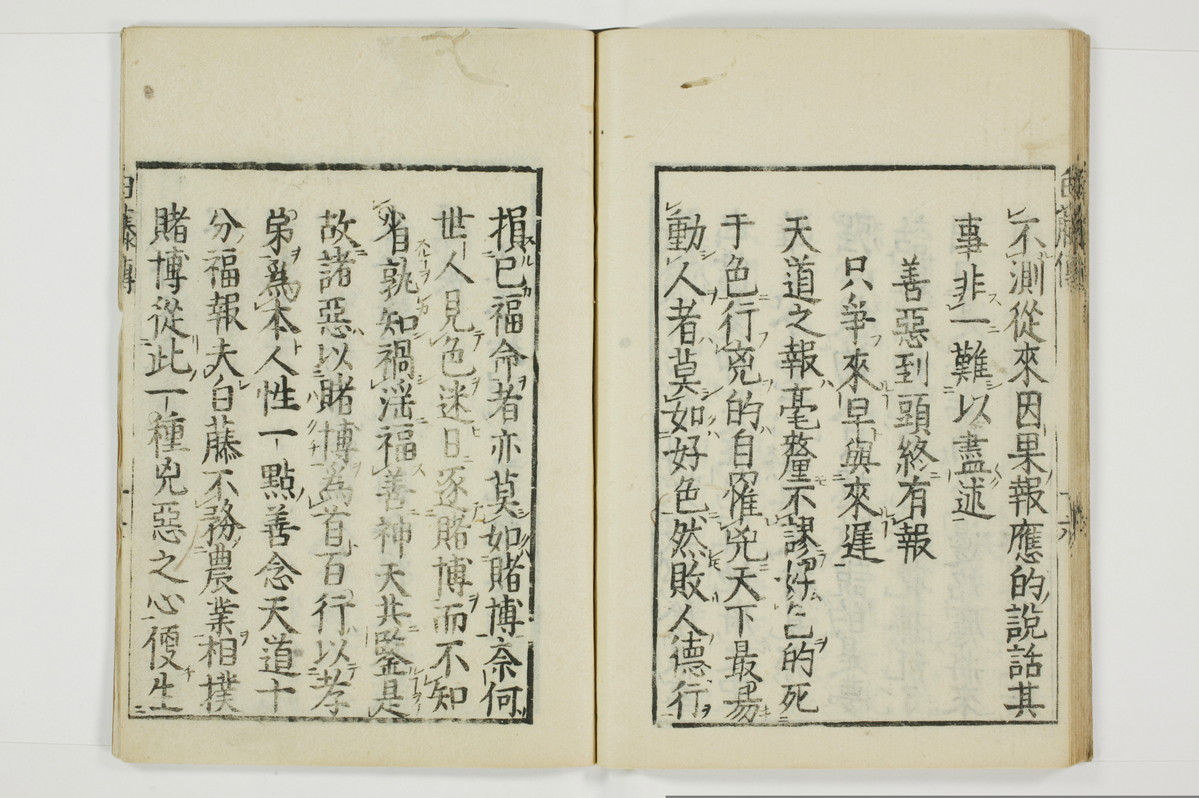 不測從來因果報應的說話其
事非一難以盡述
善惡到頭終有報
只爭來早與來遲
天道之報毫釐不謬好色的死
于色行兇的自罹兇天下最易
動人者莫如好色然敗人德行
損己福命者亦莫如賭博奈何
世人見色迷日逐賭博而不知
省孰知禍淫福善神天共鑒是
故諸惡以賭博為首百行以孝
弟爲本人性一點善念天道十
分福報夫白藤不務農業相撲
賭博從此一種兇惡之心便生
白藤傳